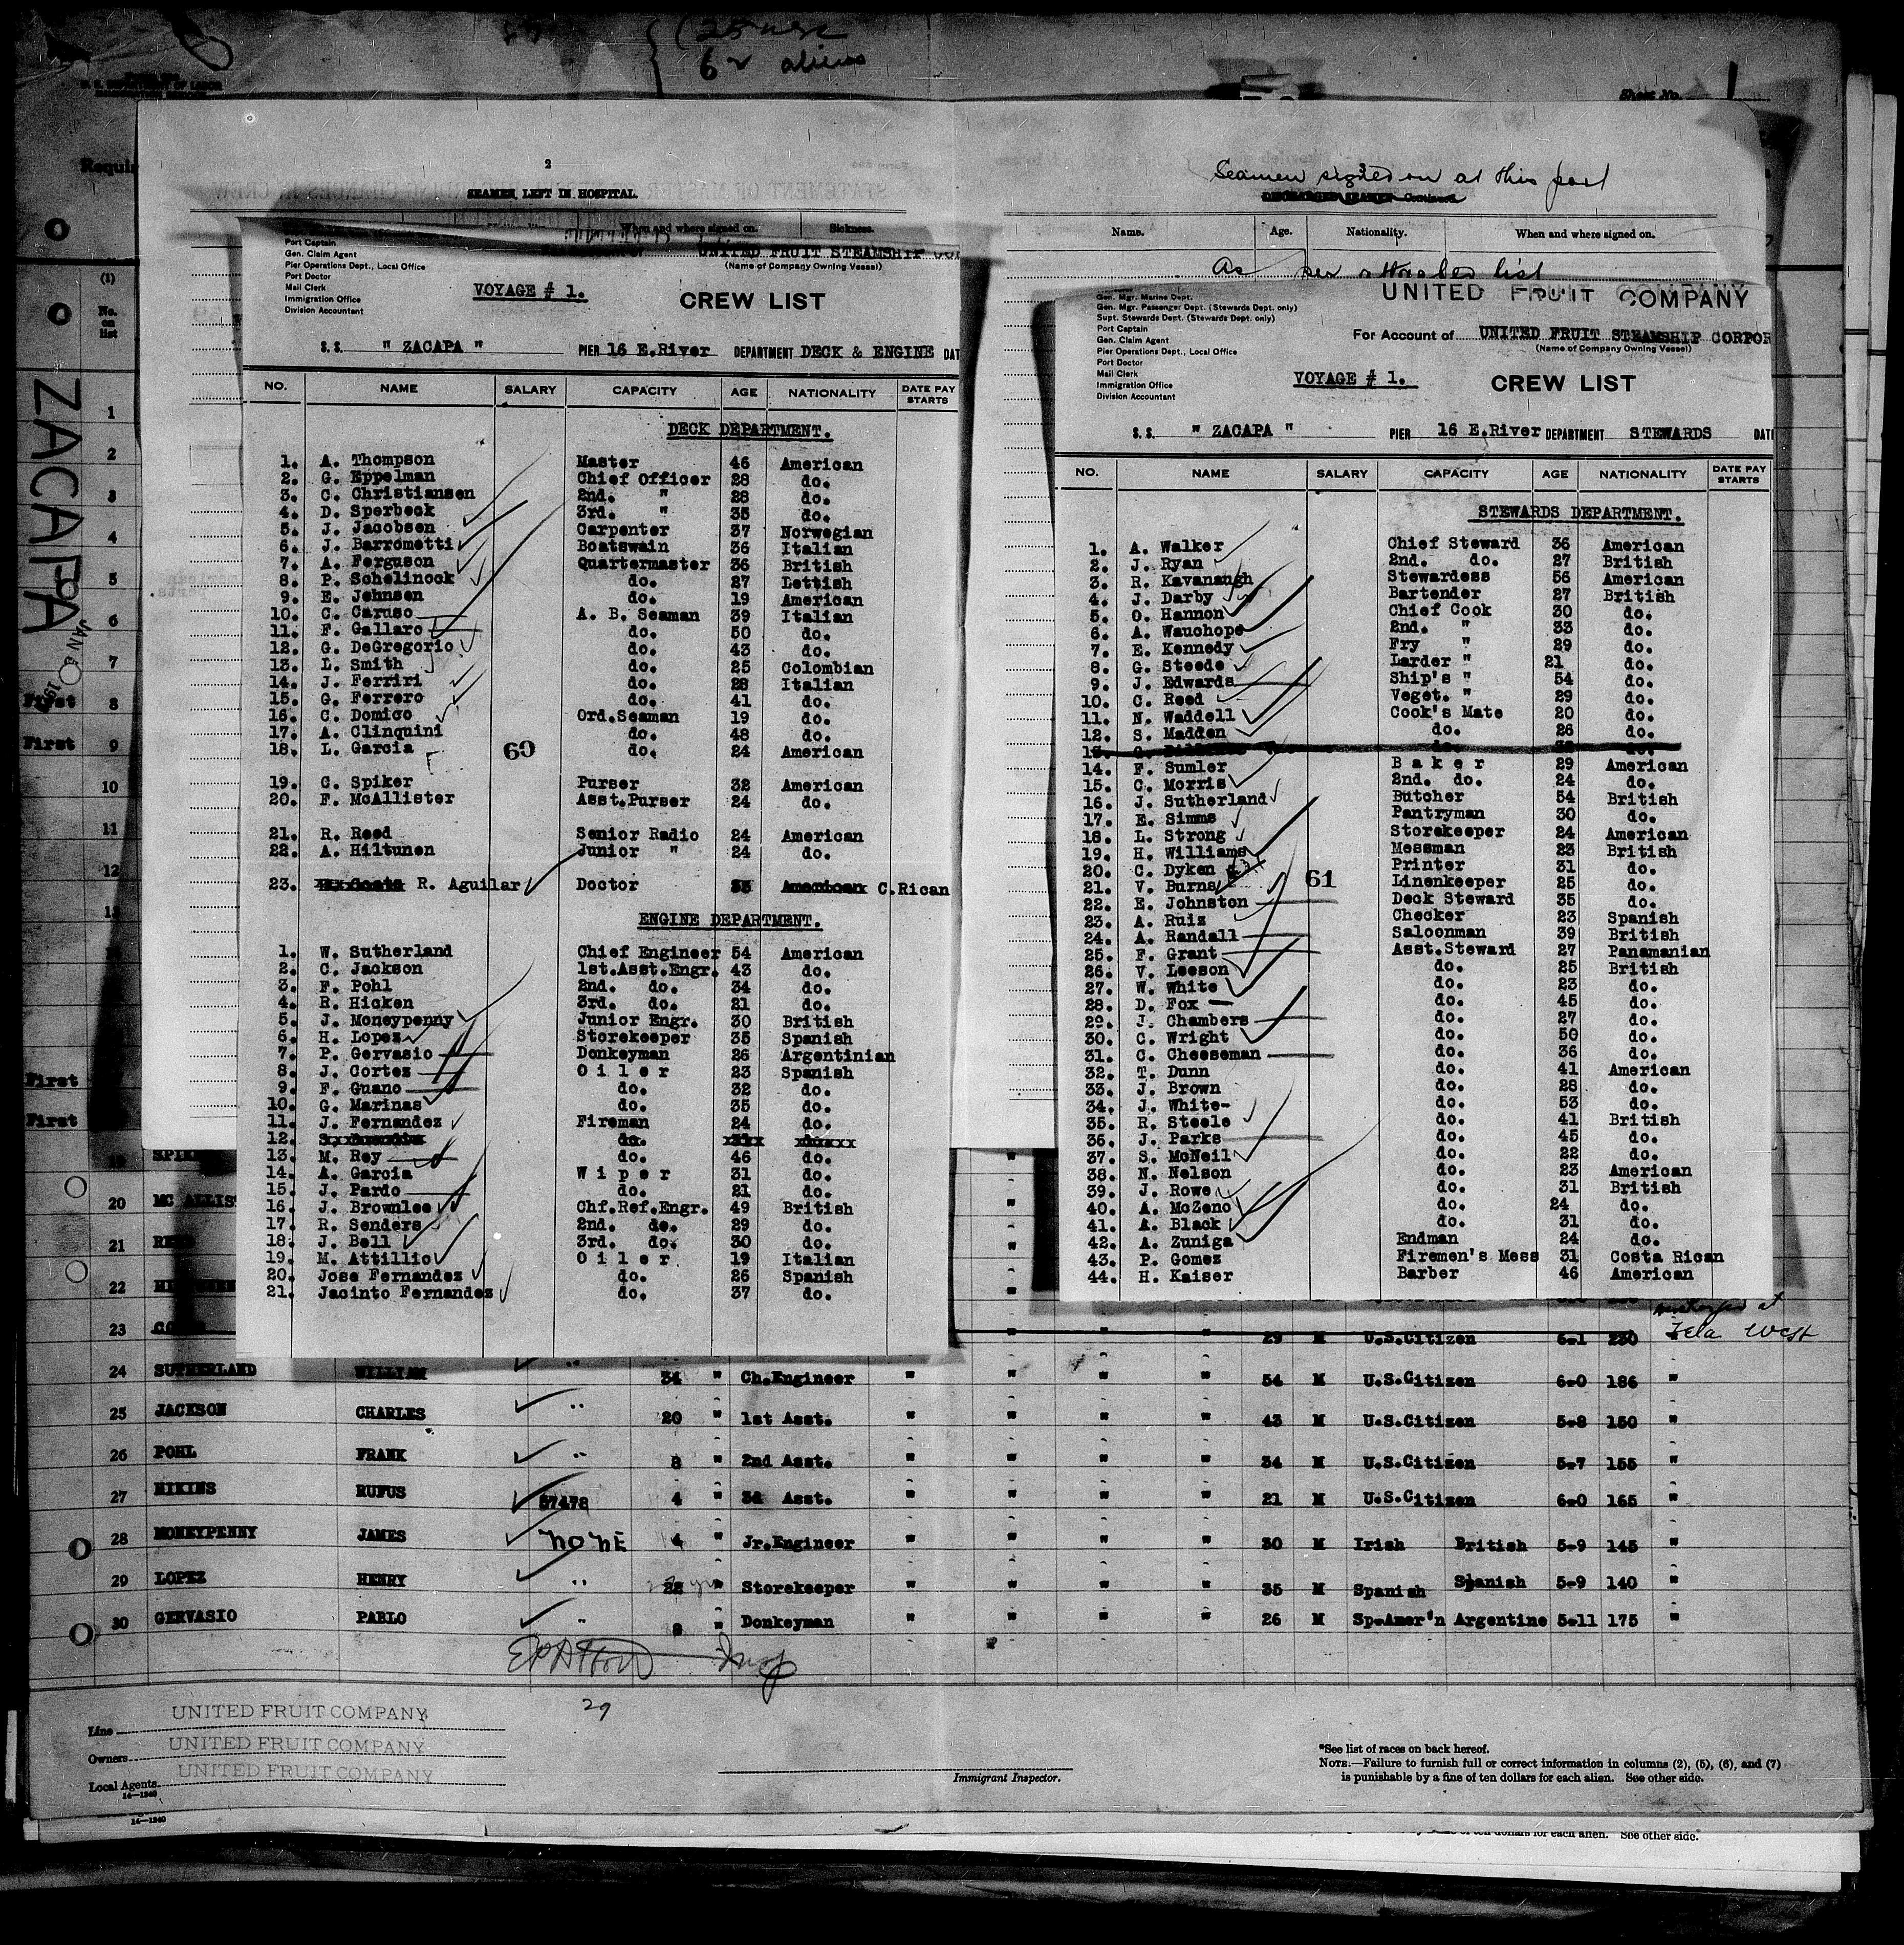 25 usc
62 aliens
Sheet No. 1
U. S. DEPARTMENT OF LABOR
Requir
(1)
No.
on
list
ZACAPA
JAN 6 19
1
2
3
4
5
6
7
First 8
First 9
10
11
12
First
First
2
SEAMEN LEFT IN HOSPITAL.
When and where signed on. Sickness.
Port Captain
Gen. Claim Agent
Pier Operations Dept., Local Office
Port Doctor
Mail Clerk
Immigration Office
Division Accountant
UNITED FRUIT STEAMSHIP
(Name of Company Owning Vessel)
VOYAGE # 1.
CREW LIST
S.S. " ZACAPA " PIER 16 E.River DEPARTMENT DECK & ENGINE DAT
NO. NAME SALARY CAPACITY AGE NATIONALITY DATE PAY STARTS
DECK DEPARTMENT.
1. A. Thompson Master 46 American
2. G. Eppelman Chief Officer 28 do.
3. C. Christiansen 2nd. " 28 do.
4. D. Sperbeck 3rd. " 35 do.
5. J. Jacobsen Carpenter 37 Norwegian
6. J. Barrometti Boatswain 36 Italian
7. A. Ferguson Quartermaster 36 British
8. P. Schelinock do. 27 Lettish
9. E. Johnsen do. 19 American
10. C. Caruso A. B. Seaman 39 Italian
11. F. Gallaro do. 50 do.
12. G. DeGregorio do. 43 do.
13. L. Smith do. 25 Colombian
14. J. Ferriri do. 28 Italian
15. G. Ferrero do. 41 do.
16. C. Domico Ord.Seaman 19 do.
17. A. Clinquini do. 48 do.
18. L. Garcia do. 24 American
60
19. C. Spiker Purser 32 American
20. F. McAllister Asst.Purser 24 do.
21. R. Reed Senior Radio 24 American
22. A. Hiltunen Junior " 24 do.
23. R. Aguilar Doctor American C.Rican
ENGINE DEPARTMENT.
1. W. Sutherland Chief Engineer 54 American
2. C. Jackson 1st.Asst.Engr. 43 do.
3. F. Pohl 2nd. do. 34 do.
4. R. Hicken 3rd. do. 21 do.
5. J. Moneypenny Junior Engr. 30 British
6. H. Lopez Storekeeper 35 Spanish
7. P. Gervasio Donkeyman 26 Argentinian
8. J. Cortez Oiler 23 Spanish
9. F. Guano do. 32 do.
10. G. Marinas do. 35 do.
11. J. Fernandez Fireman 24 do.
12. do.
13. M. Rey do. 46 do.
14. A. Garcia Wiper 31 do.
15. J. Pardo do. 21 do.
16. J. Brownlee Chf.Ref.Engr. 49 British
17. R. Senders 2nd. do. 29 do.
18. J. Bell 3rd. do. 30 do.
19. M. Attillio Oiler 19 Italian
20. Jose Fernandez do. 26 Spanish
21. Jacinto Fernandez do. 37 do.
Seamen signed on at this port
3
DISCHARGED SEAMEN—Continued
Name. Age. Nationality. When and where signed on.
As per attached list
UNITED FRUIT COMPANY
Gen. Mgr. Marine Dept.
Gen. Mgr. Passenger Dept. (Stewards Dept. only)
Supt. Stewards Dept. (Stewards Dept. only)
Port Captain
Gen. Claim Agent
Pier Operations Dept., Local Office
Port Doctor
Mail Clerk
Immigration Office
Division Accountant
For Account of UNITED FRUIT STEAMSHIP CORPOR
(Name of Company Owning Vessel)
VOYAGE # 1.
CREW LIST
S.S. " ZACAPA " PIER 16 E.River DEPARTMENT STEWARDS DATE
NO. NAME SALARY CAPACITY AGE NATIONALITY DATE PAY STARTS
STEWARDS DEPARTMENT.
1. A. Walker Chief Steward 36 American
2. J. Ryan 2nd. do. 27 British
3. R. Kavanaugh Stewardess 56 American
4. J. Darby Bartender 27 British
5. O. Hannon Chief Cook 30 do.
6. A. Wauchope 2nd. " 33 do.
7. E. Kennedy Fry " 29 do.
8. G. Steede Larder " 21 do.
9. J. Edwards Ship's " 54 do.
10. C. Reed Veget. " 29 do.
11. N. Waddell Cook's Mate 20 do.
12. S. Madden do. 26 do.
13. do.
14. F. Sumler Baker 29 American
15. C. Morris 2nd. do. 24 do.
16. J. Sutherland Butcher 54 British
17. E. Simms Pantryman 30 do.
18. L. Strong Storekeeper 24 American
19. H. Williams Messman 23 British
20. C. Dyken Printer 31 do.
21. V. Burns Linenkeeper 25 do.
61
22. E. Johnston Deck Steward 35 do.
23. A. Ruiz Checker 23 Spanish
24. A. Randall Saloonman 39 British
25. F. Grant Asst.Steward 27 Panamanian
26. V. Leeson do. 25 British
27. W. White do. 23 do.
28. D. Fox do. 45 do.
29. J. Chambers do. 27 do.
30. C. Wright do. 50 do.
31. C. Cheeseman do. 36 do.
32. T. Dunn do. 41 American
33. J. Brown do. 28 do.
34. J. White do. 53 do.
35. R. Steele do. 41 British
36. J. Parks do. 45 do.
37. S. McNeil do. 22 do.
38. N. Nelson do. 23 American
39. J. Rowe do. 31 British
40. A. McZeno do. 24 do.
41. A. Black do. 31 do.
42. A. Zuniga Endman 24 do.
43. P. Gomez Firemen's Mess 31 Costa Rican
44. H. Kaiser Barber 46 American
19 SPIK
20 MC ALLIS
21 REED
22
23 29 M U.S.Citizen 5-1 230 Tela West
24 SUTHERLAND WILLIAM 34 " Ch.Engineer " " " " 54 M U.S.Citizen 6-0 186 "
25 JACKSON CHARLES 20 " 1st Asst. " " " " 43 M U.S.Citizen 5-8 150 "
26 POHL FRANK 8 " 2nd Asst. " " " " 34 M U.S.Citizen 5-7 155 "
27 HIKINS RUFUS 57478 4 " 3d Asst. " " " " 21 M U.S.Citizen 6-0 165 "
28 MONEYPENNY JAMES NONE 4 " Jr.Engineer " " " " 30 M Irish British 5-9 145 "
29 LOPEZ HENRY " Storekeeper " " " " 35 M Spanish Spanish 5-9 140 "
30 GERVASIO PABLO 8 " Donkeyman " " " " 26 M Sp-Amer'n Argentine 5-11 175 "
29
Line UNITED FRUIT COMPANY
Owners UNITED FRUIT COMPANY
Local Agents UNITED FRUIT COMPANY
14—1240
Immigrant Inspector.
*See list of races on back hereof.
NOTE.—Failure to furnish full or correct information in columns (2), (5), (6), and (7)
is punishable by a fine of ten dollars for each alien. See other side.
14—1240
of ten dollars for each alien. See other side.